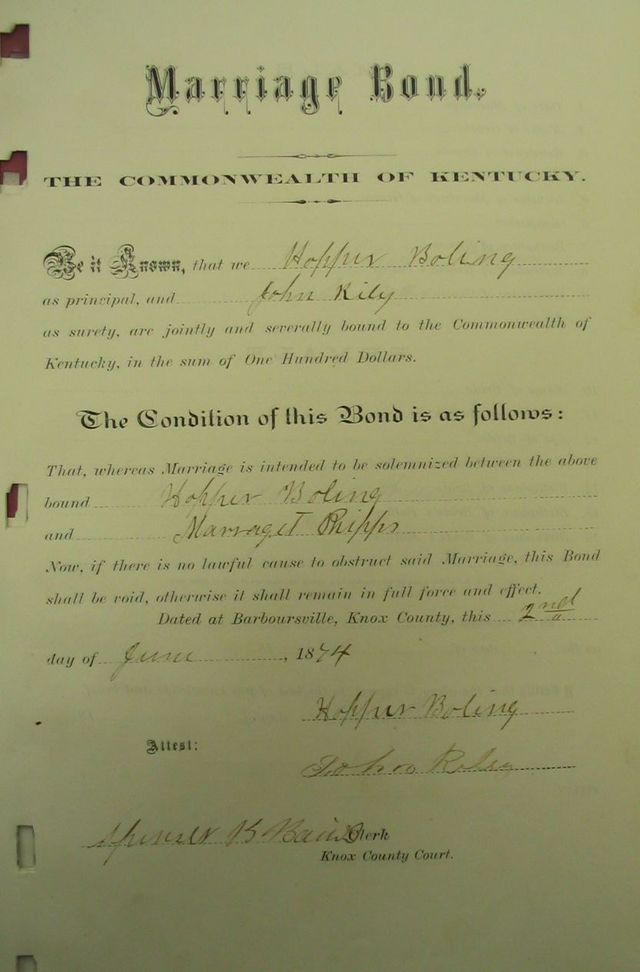 Marriage Bond.
THE COMMONWEALTH OF KENTUCKY.
Be it Known, that we Hopper Boling
as principal, and John Rily
as surety, are jointly and severally bound to the Commonwealth of
Kentucky, in the sum of One Hundred Dollars.
The Condition of this Bond is as follows:
That, whereas Marriage is intended to be solemnized between the above
bound Hopper Boling
and Marraget Phipps
Now, if there is no lawful cause to obstruct said Marriage, this Bond
shall be void, otherwise it shall remain in full force and effect.
Dated at Barboursville, Knox County, this 2nd
day of June, 1874
Hopper Boling
Attest:
B Clerk
Knox County Court.